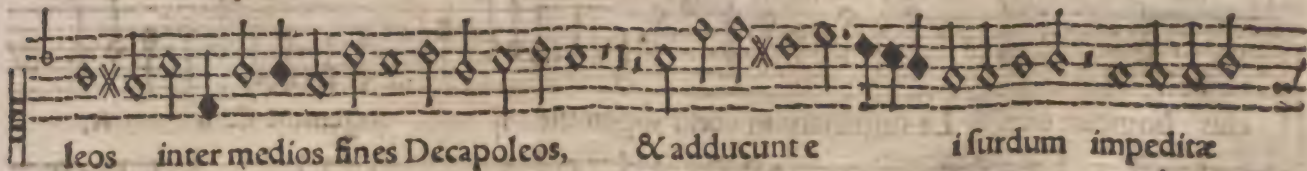 leos inter medios fines Decapoleos, & adducunt e i surdum impeditæ